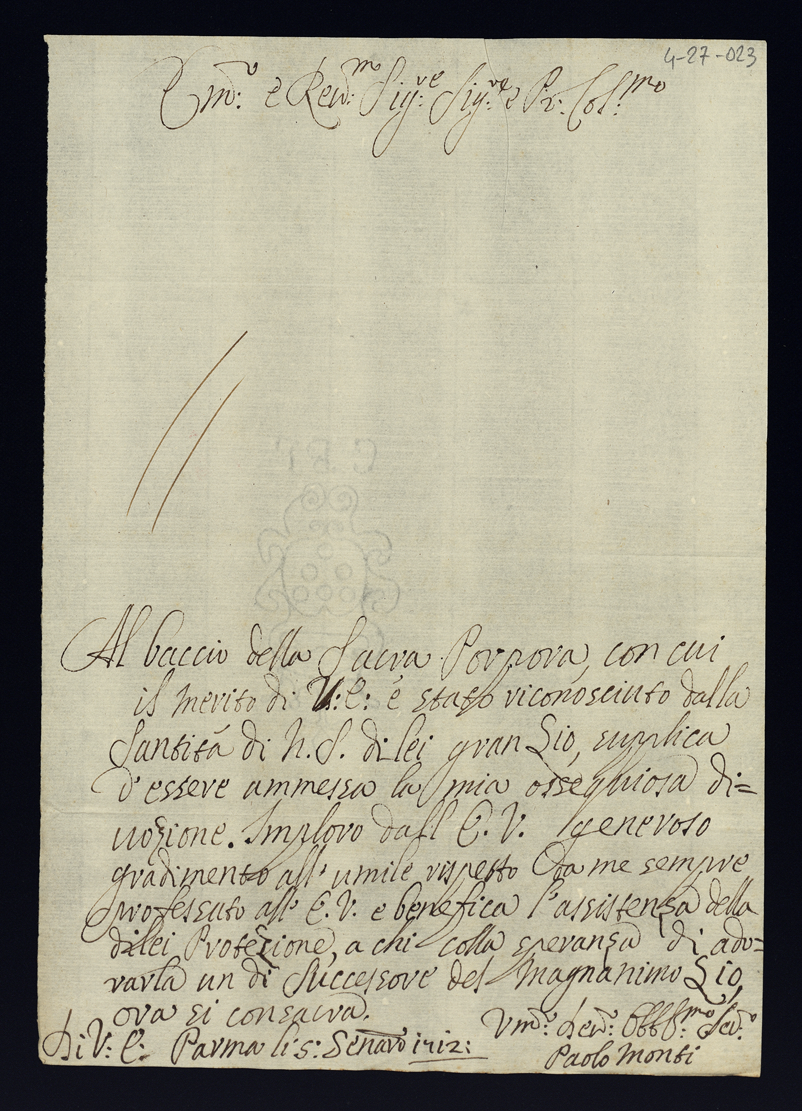 4-27-023
Em:o e Rev:mo Sig:re Sig:re e Pr: Col:mo
CBT
Al baccio della Sacra Porpora, con cui
il merito di V: E: è stato riconosciuto dalla
Santità di N. S. di lei gran Zio, supplica
d'essere ammessa la mia ossequiosa di=
uozione. Imploro dall' E. V. generoso
gradimento all' umile rispetto da me sempre
professato all' E. V. e benefica l'assistenza della
di lei Protezione, a chi colla speranza di ado=
rarla un dì Successore del Magnanimo Zio,
ora si consacra.
Di V: E: Parma li 5: Genaro 1712:
Um:o Dev: Obbl:mo Ser:o
Paolo Monti